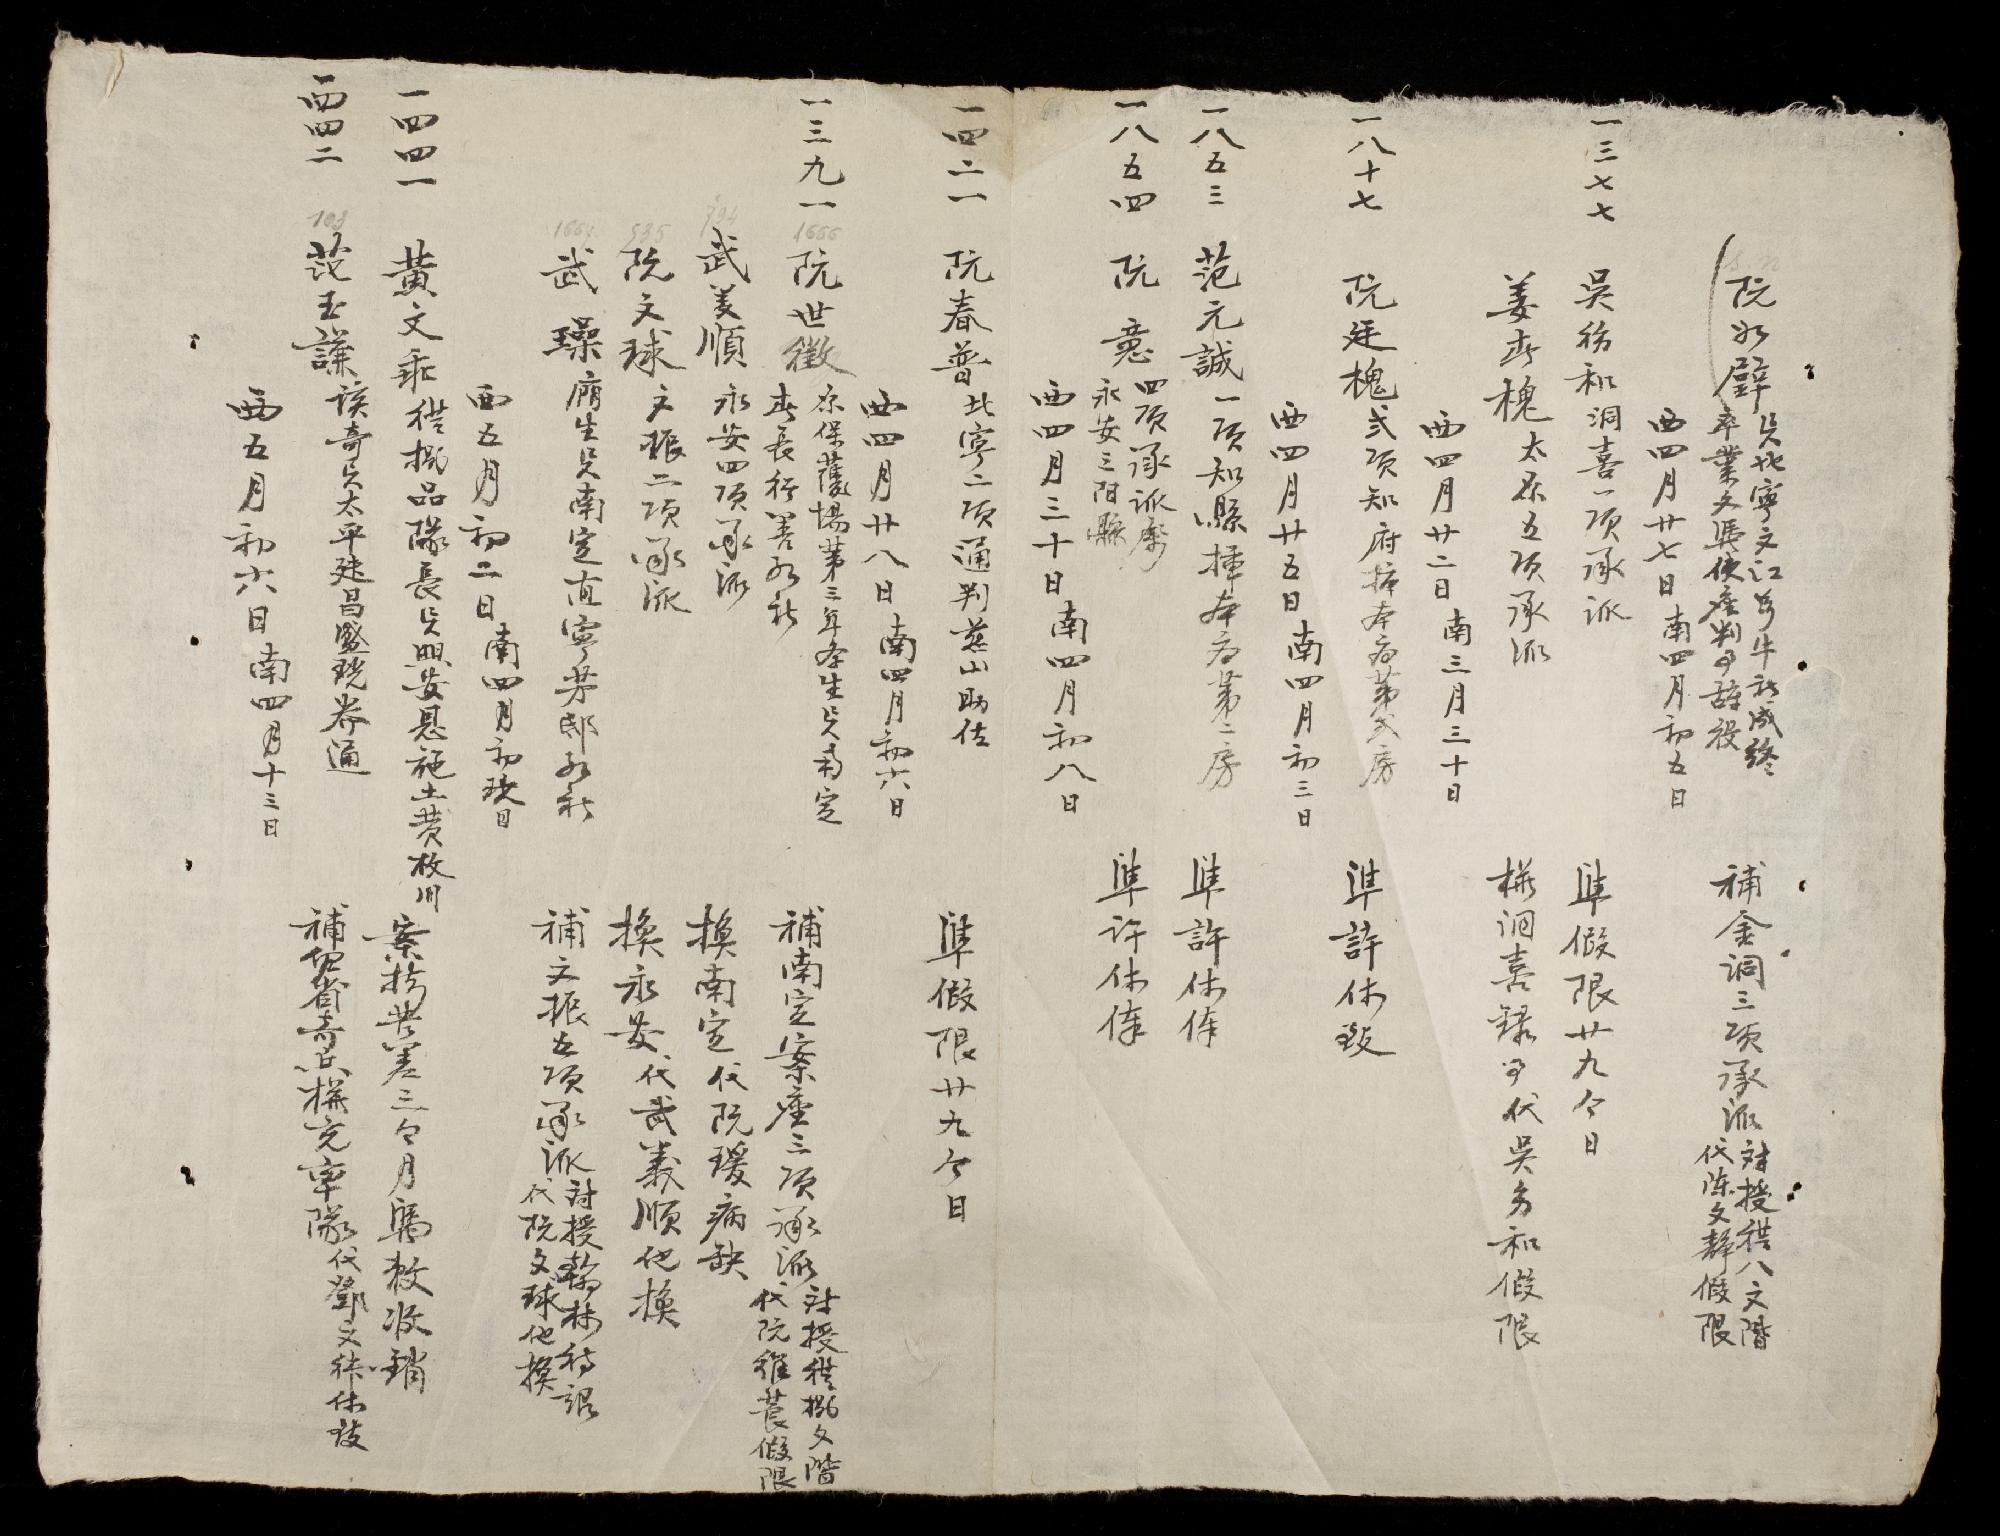 阮如璧 貫北寧文江芳牛社成終
卒業文憑使座判事辞役
補金洞三項承派 対授從八文階
代陳文静假限
西四月廿七日南四月初五日
一三七七 吳務和洞喜一項承派 準假限廿九个日
姜春槐太原五項承派 攝洞喜録事代吳务和假限
西四月廿二日南三月三十日
一八十七 阮廷槐弍項知府攃本府第弍房 準許休致
西四月廿五日南四月初三日
一八五三 范元誠一項知縣攃本府第二房 準許休俸
一八五四 阮意 四項承派攃
永安三附縣
準許休俸
西四月三十日南四月初八日
一四二一 阮春普北寧二項通判慈山助佐 準假限廿九个日
西四月廿八日南四月初六日
一三九一 1666 阮世徵 原保護場第三年冬生貫南定
春長行善水社
補南定案座三項承派 対授從捌文階
代阮維莨假限
734 武義順永安四項承派 換南定代阮瑗病缺
535 阮文球文振二項承派 換永安代武義順他換
武璪廕生貫南定直寧芳郎水社 補文振五項承派 対授翰林待詔
代阮文球他換
西五月初二日南四月初玖日
一四四一 黃文乖從捌品隊長貫興安恩施土黃枚川 案拟苦差三个月馬敕收銷
西四二 103 范玉謙該奇貫太平建昌盛珖券通 補留省奇兵攝充率隊 代鄧文緯休致
西五月初六日南四月十三日